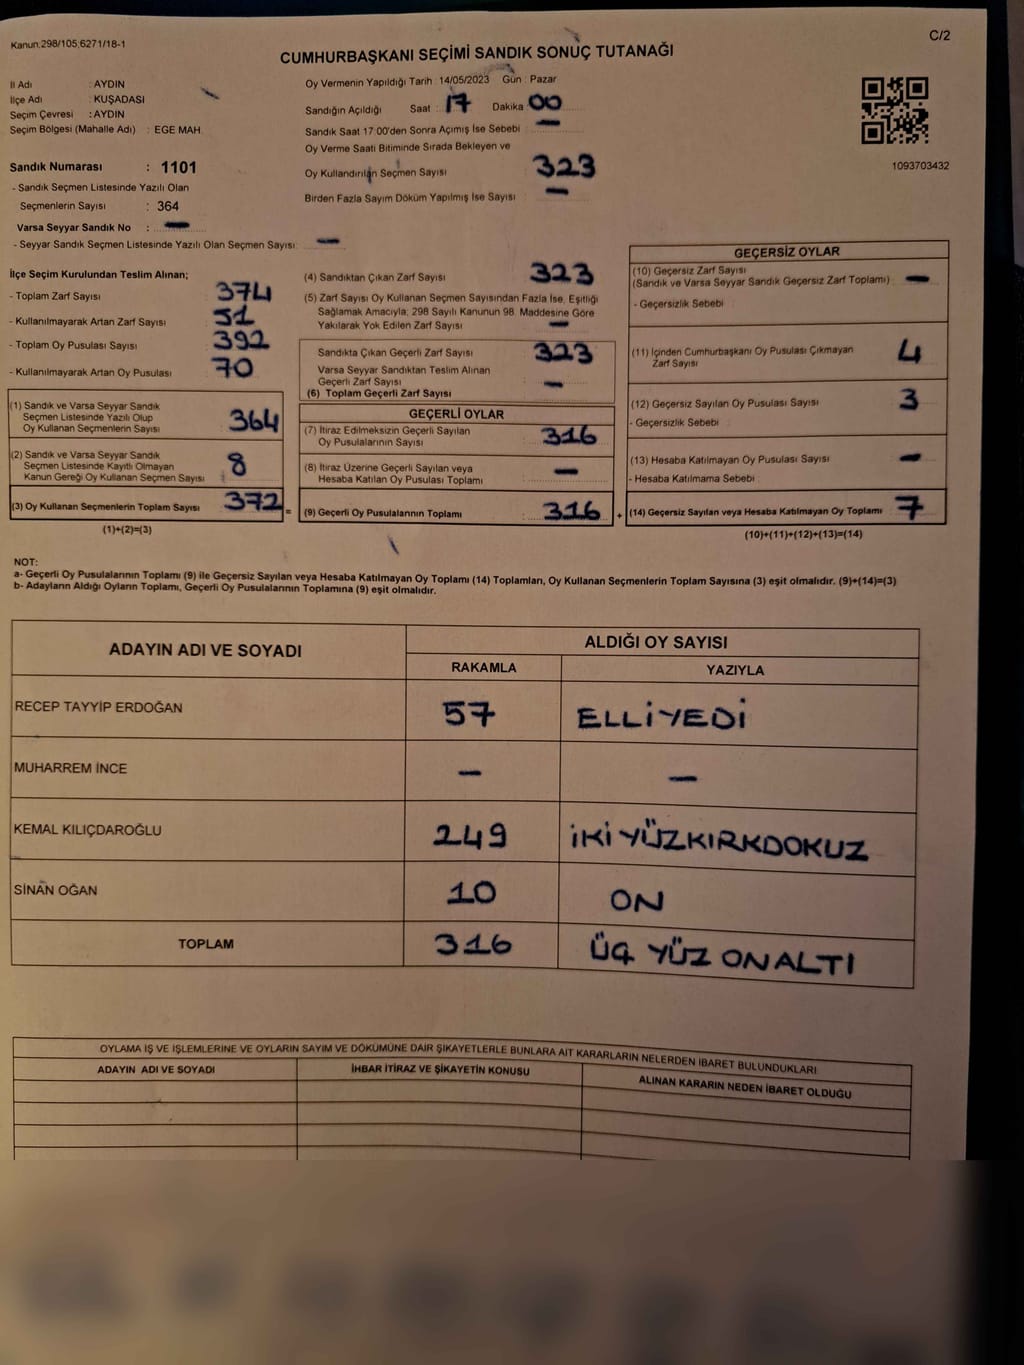 Kanun.298/105,6271/18-1
C/2
CUMHURBAŞKANI SEÇİMİ SANDIK SONUÇ TUTANAĞI
İl Adı : AYDIN
İlçe Adı : KUŞADASI
Seçim Çevresi : AYDIN
Seçim Bölgesi (Mahalle Adı) : EGE MAH.
Sandık Numarası : 1101
- Sandık Seçmen Listesinde Yazılı Olan
Seçmenlerin Sayısı : 364
Varsa Seyyar Sandık No : —
- Seyyar Sandık Seçmen Listesinde Yazılı Olan Seçmen Sayısı: —
Oy Vermenin Yapıldığı Tarih : 14/05/2023 Gün : Pazar
Sandığın Açıldığı Saat : 17 Dakika 00
Sandık Saat 17:00'den Sonra Açımış İse Sebebi : —
Oy Verme Saati Bitiminde Sırada Bekleyen ve
Oy Kullandırılan Seçmen Sayısı : 323
Birden Fazla Sayım Döküm Yapılmış İse Sayısı : —
1093703432
İlçe Seçim Kurulundan Teslim Alınan;
- Toplam Zarf Sayısı : 374
- Kullanılmayarak Artan Zarf Sayısı : 51
- Toplam Oy Pusulası Sayısı : 392
- Kullanılmayarak Artan Oy Pusulası : 70
(1) Sandık ve Varsa Seyyar Sandık
Seçmen Listesinde Yazılı Olup
Oy Kullanan Seçmenlerin Sayısı : 364
(2) Sandık ve Varsa Seyyar Sandık
Seçmen Listesinde Kayıtlı Olmayan
Kanun Gereği Oy Kullanan Seçmen Sayısı : 8
(3) Oy Kullanan Seçmenlerin Toplam Sayısı : 372 =
(1)+(2)=(3)
(4) Sandıktan Çıkan Zarf Sayısı : 323
(5) Zarf Sayısı Oy Kullanan Seçmen Sayısından Fazla İse, Eşitliği
Sağlamak Amacıyla; 298 Sayılı Kanunun 98. Maddesine Göre
Yakılarak Yok Edilen Zarf Sayısı : —
Sandıkta Çıkan Geçerli Zarf Sayısı : 323
Varsa Seyyar Sandıktan Teslim Alınan
Geçerli Zarf Sayısı : —
(6) Toplam Geçerli Zarf Sayısı
GEÇERLİ OYLAR
(7) İtiraz Edilmeksizin Geçerli Sayılan
Oy Pusulalarının Sayısı : 316
(8) İtiraz Üzerine Geçerli Sayılan veya
Hesaba Katılan Oy Pusulası Toplamı : —
(9) Geçerli Oy Pusulalarının Toplamı : 316 +
GEÇERSİZ OYLAR
(10) Geçersiz Zarf Sayısı
(Sandık ve Varsa Seyyar Sandık Geçersiz Zarf Toplamı) : —
- Geçersizlik Sebebi :
(11) İçinden Cumhurbaşkanı Oy Pusulası Çıkmayan
Zarf Sayısı : 4
(12) Geçersiz Sayılan Oy Pusulası Sayısı : 3
- Geçersizlik Sebebi :
(13) Hesaba Katılmayan Oy Pusulası Sayısı : —
- Hesaba Katılmama Sebebi :
(14) Geçersiz Sayılan veya Hesaba Katılmayan Oy Toplamı : 7
(10)+(11)+(12)+(13)=(14)
NOT:
a- Geçerli Oy Pusulalarının Toplamı (9) ile Geçersiz Sayılan veya Hesaba Katılmayan Oy Toplamı (14) Toplamları, Oy Kullanan Seçmenlerin Toplam Sayısına (3) eşit olmalıdır. (9)+(14)=(3)
b- Adayların Aldığı Oyların Toplamı, Geçerli Oy Pusulalarının Toplamına (9) eşit olmalıdır.
ADAYIN ADI VE SOYADI ALDIĞI OY SAYISI
RAKAMLA YAZIYLA
RECEP TAYYİP ERDOĞAN 57 ELLİYEDİ
MUHARREM İNCE — —
KEMAL KILIÇDAROĞLU 249 İKİYÜZKIRKDOKUZ
SİNAN OĞAN 10 ON
TOPLAM 316 ÜÇ YÜZ ONALTI
OYLAMA İŞ VE İŞLEMLERİNE VE OYLARIN SAYIM VE DÖKÜMÜNE DAİR ŞİKAYETLERLE BUNLARA AİT KARARLARIN NELERDEN İBARET BULUNDUKLARI
ADAYIN ADI VE SOYADI İHBAR İTİRAZ VE ŞİKAYETİN KONUSU ALINAN KARARIN NEDEN İBARET OLDUĞU